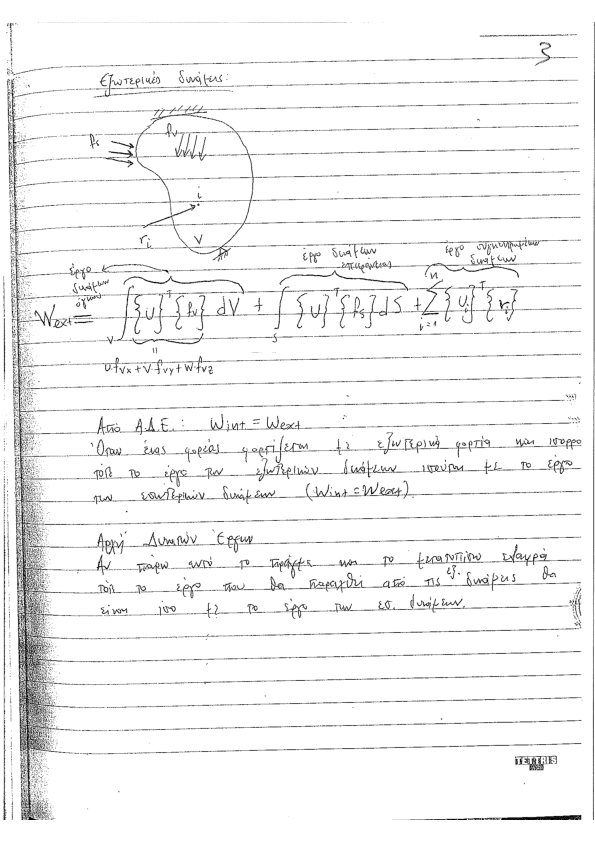 3
Εξωτερικές δυνάμεις:
fs
fv
i
ri
V
έργο δυνάμεων όγκου
έργο δυνάμεων επιφάνειας
έργο συγκεντρωμένων δυνάμεων
Wext = ∫V {U}^T {fv} dV + ∫S {U}^T {fs} dS + Σ i=1 n {Ui}^T {ri}
u·fvx + v·fvy + w·fvz
Από Α.Δ.Ε.: Wint = Wext
Όταν ένας φορέας φορτίζεται με εξωτερικά φορτία και ισορρο
τότε το έργο των εξωτερικών δυνάμεων ισούται με το έργο
των εσωτερικών δυνάμεων (Wint = Wext).
Αρχή Δυνατών Έργων
Αν πάρω αυτό το πράγμα και το μετατοπίσω ελαφρά
τότε το έργο που θα παραχθεί από τις εξ. δυνάμεις θα
είναι ίσο με το έργο των εσ. δυνάμεων.
TETTRIS